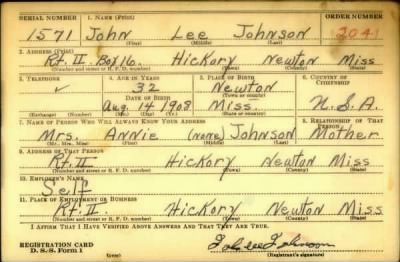 SERIAL NUMBER 1. NAME (Print) ORDER NUMBER
1571 John Lee Johnson 2041
(First) (Middle) (Last)
2. ADDRESS (Print)
Rt. II Box 16. Hickory Newton Miss
(Number and street or R. F. D. number) (Town) (County) (State)
3. TELEPHONE 4. AGE IN YEARS 5. PLACE OF BIRTH 6. COUNTRY OF CITIZENSHIP
✓ 32 Newton
DATE OF BIRTH (Town or county)
Aug. 14 1908 Miss. U.S.A.
(Exchange) (Number) (Mo.) (Day) (Yr.) (State or country)
7. NAME OF PERSON WHO WILL ALWAYS KNOW YOUR ADDRESS 8. RELATIONSHIP OF THAT PERSON
Mrs. Annie (none) Johnson Mother
(Mr., Mrs., Miss) (First) (Middle) (Last)
9. ADDRESS OF THAT PERSON
Rt. II Hickory Newton Miss
(Number and street or R. F. D. number) (Town) (County) (State)
10. EMPLOYER'S NAME
Self
11. PLACE OF EMPLOYMENT OR BUSINESS
Rt. II. Hickory Newton Miss
(Number and street or R. F. D. number) (Town) (County) (State)
I AFFIRM THAT I HAVE VERIFIED ABOVE ANSWERS AND THAT THEY ARE TRUE.
REGISTRATION CARD
D. S. S. Form 1 (over) (Registrant's signature)
John lee Johnson